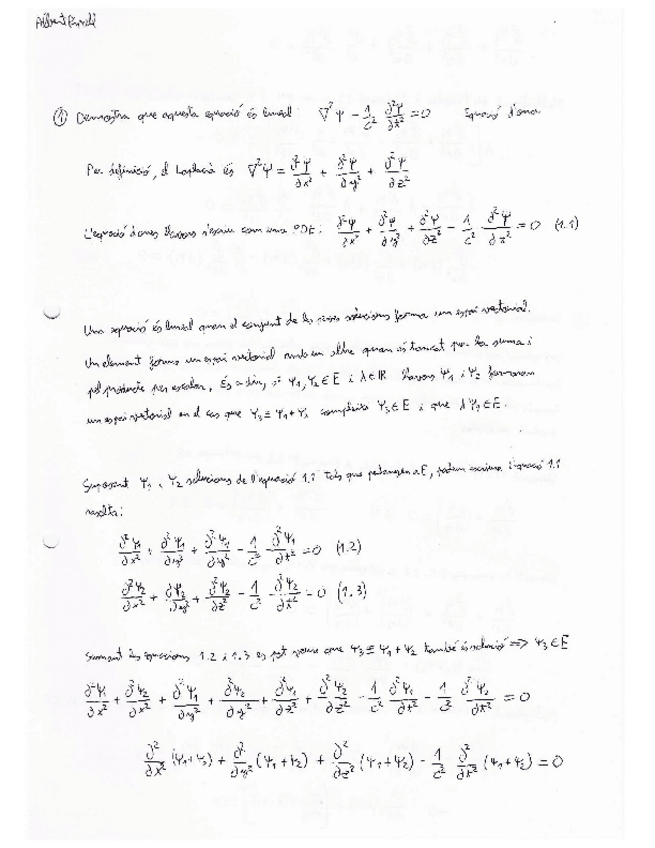 ① Demostra que aquesta equació és lineal: ∇²Ψ − 1/c² ∂²Ψ/∂t² = 0 Equació d'ona
Per definició, el Laplacià és ∇²Ψ = ∂²Ψ/∂x² + ∂²Ψ/∂y² + ∂²Ψ/∂z²
L'equació d'ones llavors s'escriu com una PDE: ∂²Ψ/∂x² + ∂²Ψ/∂y² + ∂²Ψ/∂z² − 1/c² ∂²Ψ/∂t² = 0 (1.1)
Una equació és lineal quan el conjunt de les seves solucions forma un espai vectorial.
Un element forma un espai vectorial amb un altre quan és tancat per la suma i
pel producte per escalar, és a dir, si Ψ₁, Ψ₂ ∈ E i λ ∈ ℝ llavors Ψ₁ i Ψ₂ formaran
un espai vectorial en el cas que Ψ₃ ≡ Ψ₁ + Ψ₂ compleixi Ψ₃ ∈ E i que λΨ₁ ∈ E.
Suposant Ψ₁ i Ψ₂ solucions de l'equació 1.1 tals que pertanyen a E, podem escriure l'equació 1.1
resolta:
∂²Ψ₁/∂x² + ∂²Ψ₁/∂y² + ∂²Ψ₁/∂z² − 1/c² ∂²Ψ₁/∂t² = 0 (1.2)
∂²Ψ₂/∂x² + ∂Ψ₂/∂y² + ∂²Ψ₂/∂z² − 1/c² ∂²Ψ₂/∂t² = 0 (1.3)
Sumant les equacions 1.2 i 1.3 es pot veure que Ψ₃ ≡ Ψ₁ + Ψ₂ també és solució ⇒ Ψ₃ ∈ E
∂²Ψ₁/∂x² + ∂²Ψ₂/∂x² + ∂²Ψ₁/∂y² + ∂²Ψ₂/∂y² + ∂²Ψ₁/∂z² + ∂²Ψ₂/∂z² − 1/c² ∂²Ψ₁/∂t² − 1/c² ∂²Ψ₂/∂t² = 0
∂²/∂x² (Ψ₁+Ψ₂) + ∂²/∂y² (Ψ₁+Ψ₂) + ∂²/∂z² (Ψ₁+Ψ₂) − 1/c² ∂²/∂t² (Ψ₁+Ψ₂) = 0